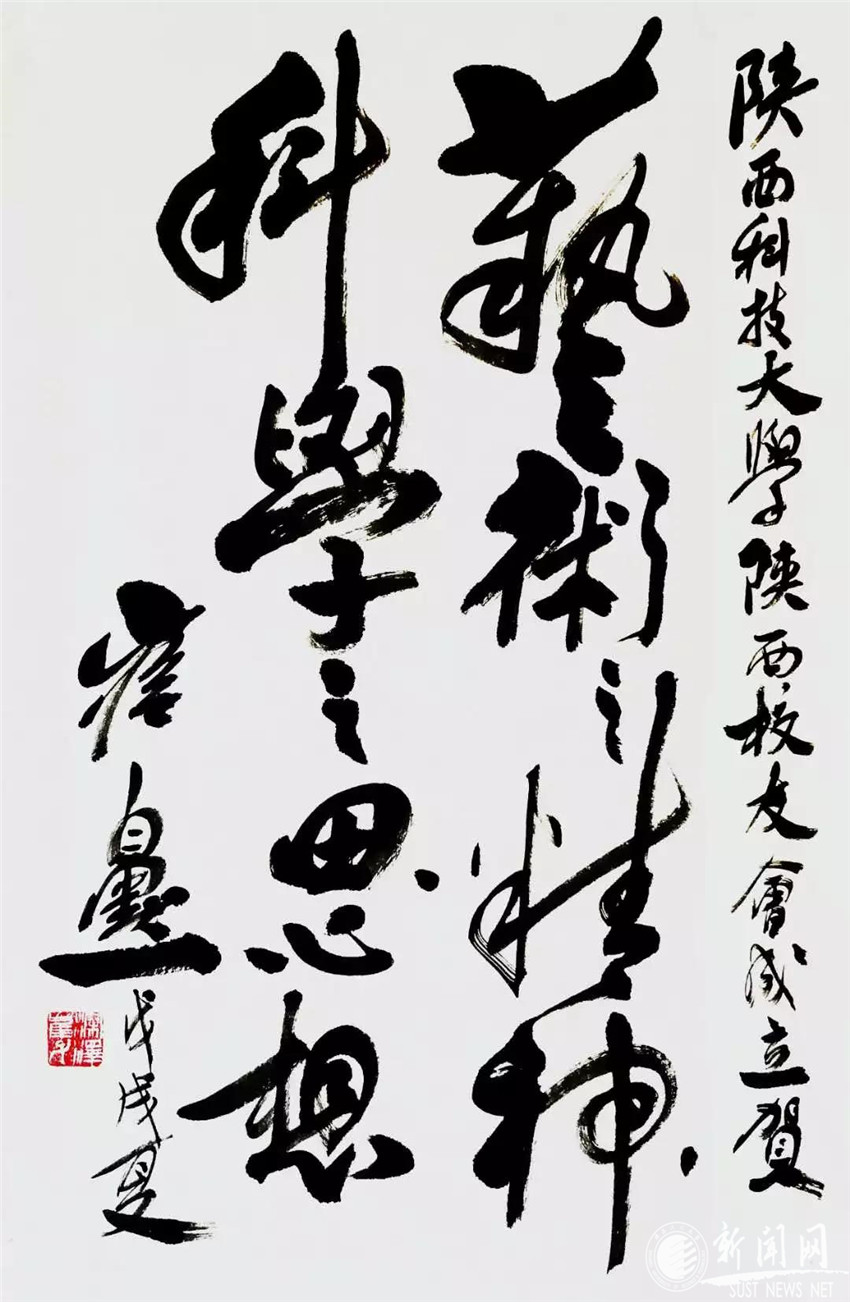 陝西科技大學陝西校友會成立賀
藝術之精神
科學之思想
戊戌夏
新闻网
SUST NEWS NET